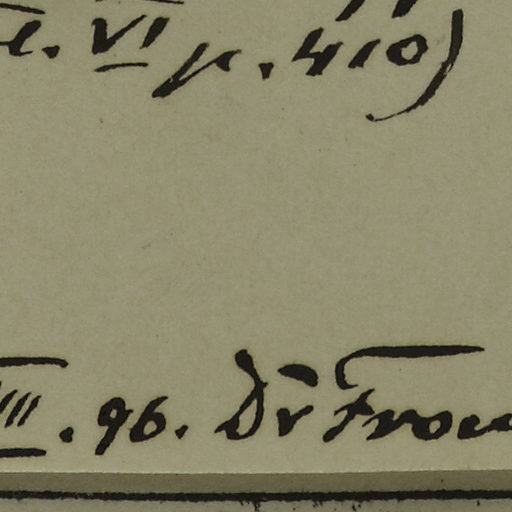 VI p. 410)
III. 96. Dr